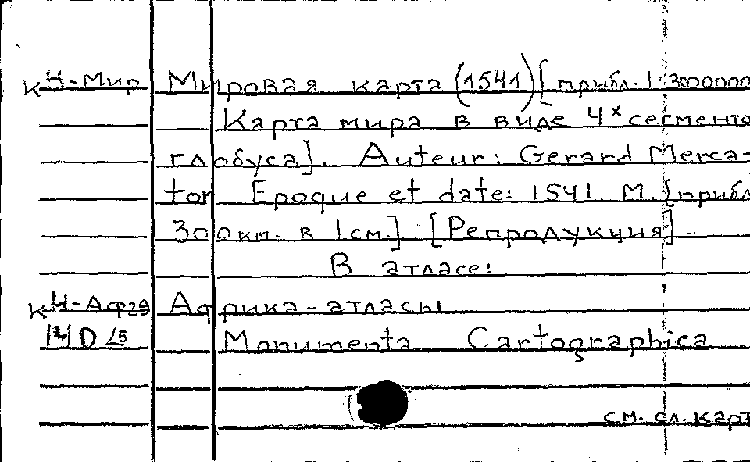 кН-Мир Мировая карта (1541) [прибл. 1:3000000
Карта мира в виде 4х сегменто
глобуса]. Auteur: Gerard Merca-
tor Epoque et date: 1541 М. [прибл
300км. в 1см.] [Репродукция]
В атласе:
кН- Африка-атласы
D Monumenta Cartographica
см. сл. карт